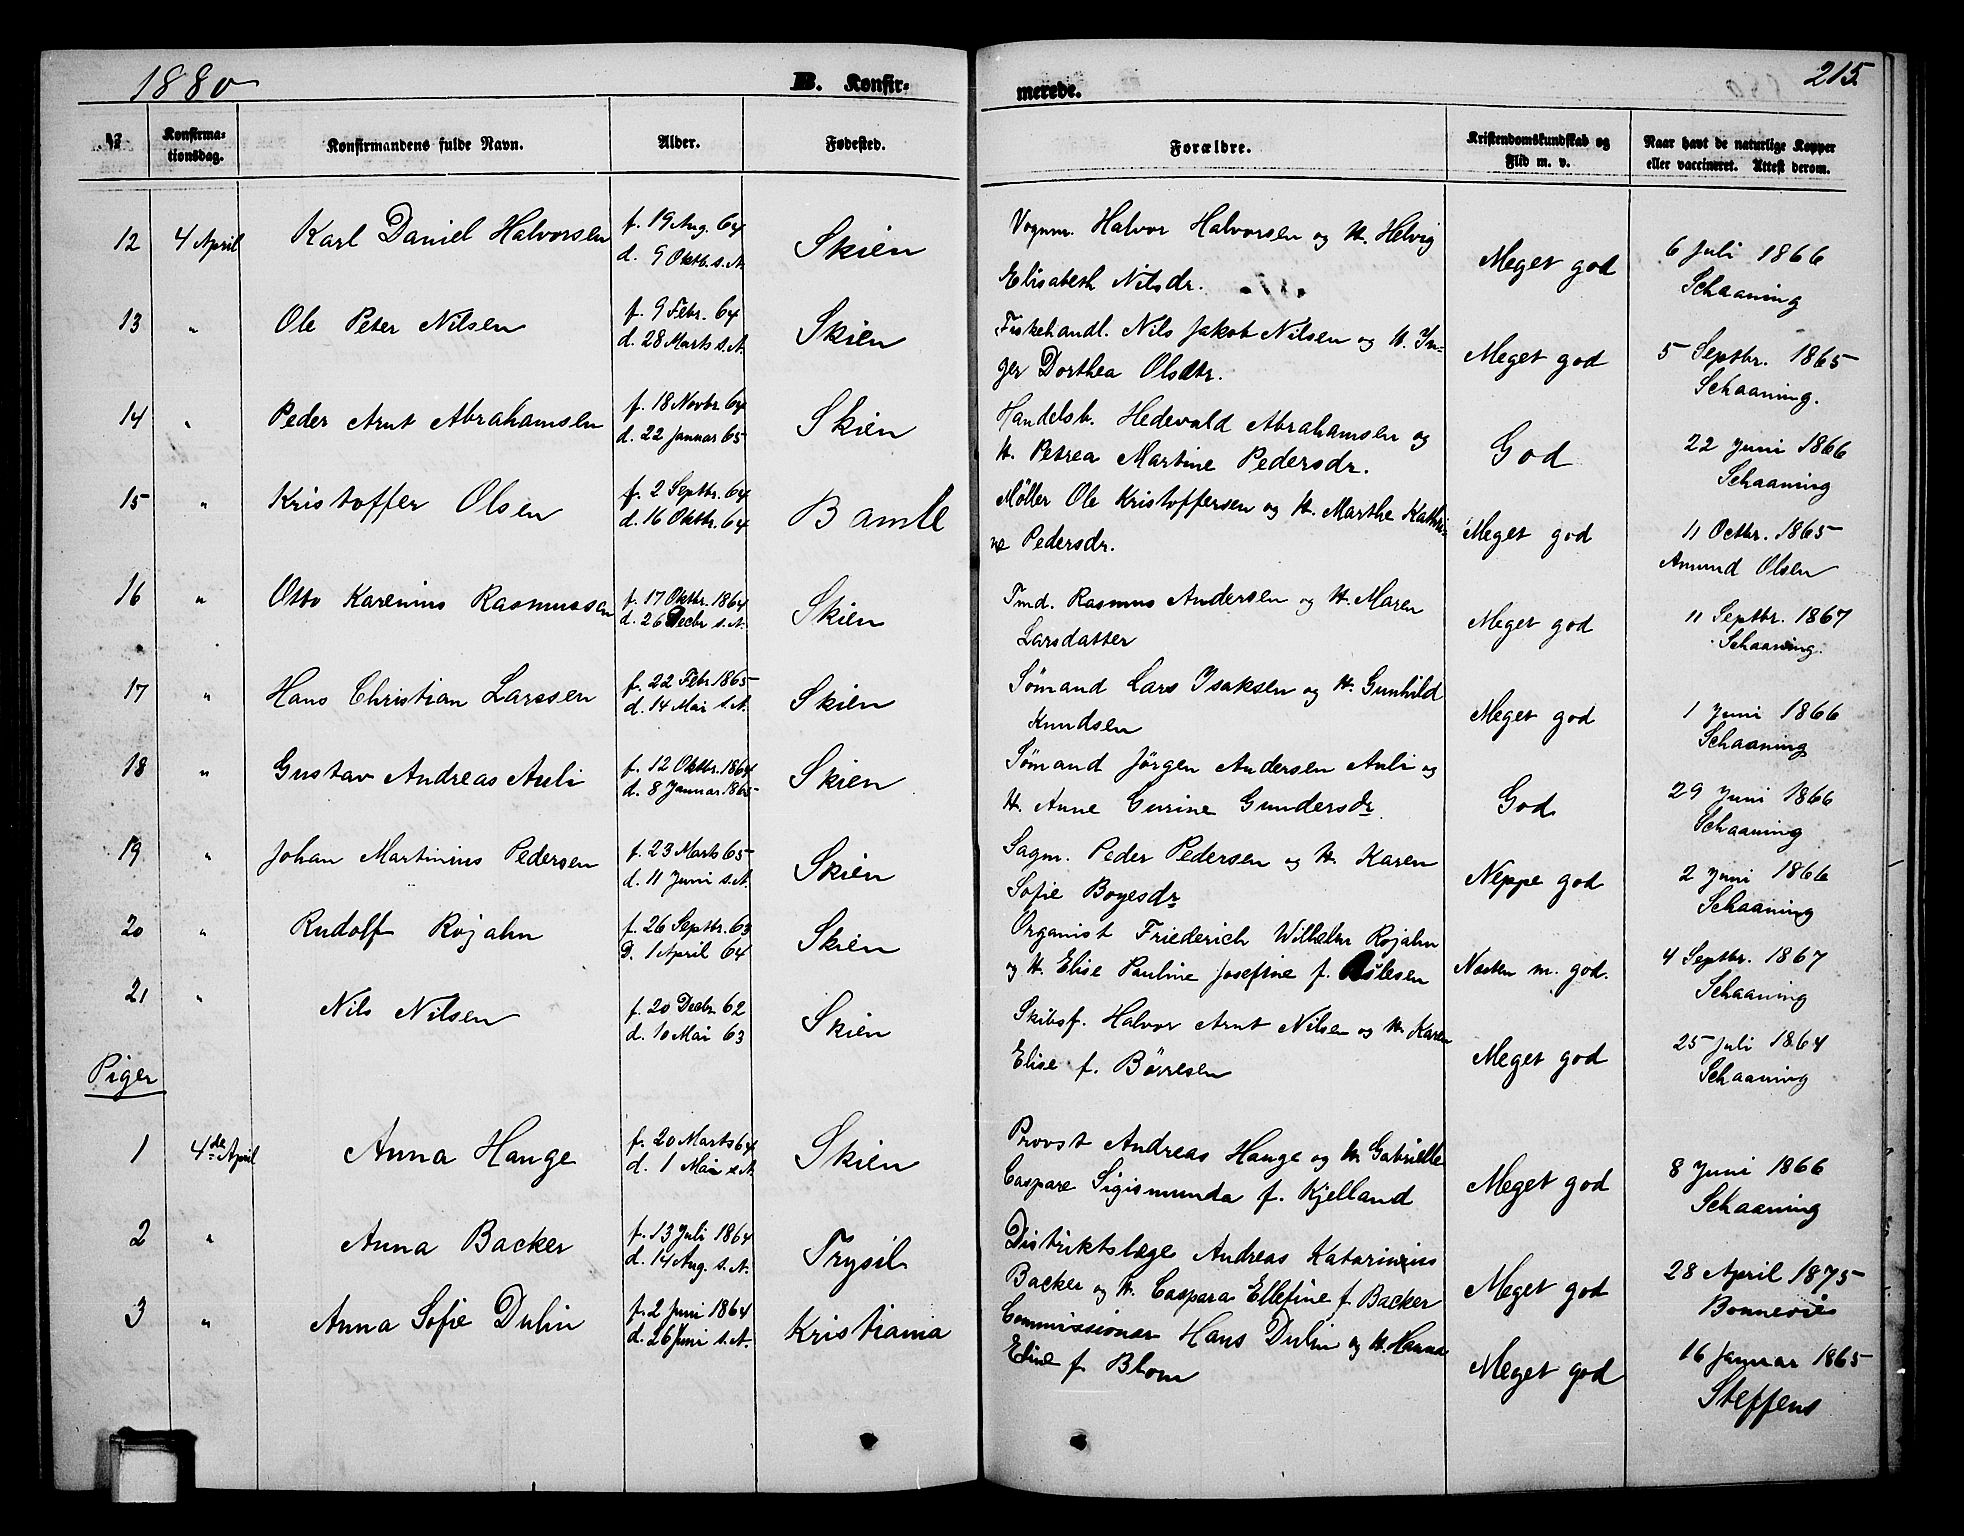 1880 B. Konfir- merede. 215
№ Konfirma- tionsdag. Konfirmandens fulde Navn. Alder. Fødested. Forældre. Kristendomskundskab og Flid m. v. Naar havt de naturlige Kopper eller vaccineret. Attest derom.
12 4 April Karl Daniel Halvorsen f. 19 Aug. 64 Skien Vognm. Halvor Halvorsen og H. Helvig Meget god 6 Juli 1866
d. 9 Oktb. s. A. Elisabeth Nilsdr. Schaaning
13 " Ole Peter Nilsen f. 9 Febr. 64 Skien Fiskehandl. Nils Jakob Nilsen og H. In- Meget god 5 Septbr. 1865
d. 28 Marts s. A. ger Dorthea Olsdtr. Schaaning.
14 " Peder Arnt Abrahamsen f. 18 Novbr 64 Skien Handelsb. Hedevald Abrahamsen og God 22 Juni 1866
d. 22 Januar 65 H. Petrea Martine Pedersdr. Schaaning
15 " Kristoffer Olsen f. 2 Septbr. 64 Bamle Møller Ole Kristoffersen og H. Marthe Kathri- Meget god 11 Octbr. 1865
d. 16 Oktbr. 64 ne Pedersdr. Amund Olsen
16 " Otto Karenius Rasmussen f. 17 Oktbr. 1864 Skien Tmd. Rasmus Andersen og H. Maren Meget god 11 Septbr. 1867
d. 26 Decbr s. A. Larsdatter Schaaning.
17 " Hans Christian Larssen f. 22 Febr. 1865 Skien Sømand Lars Isaksen og H. Gunhild Meget god 1 Juni 1866
d. 14 Mai s. A. Knudsen Schaaning
18 " Gustav Andreas Auli f. 12 Oktbr. 1864 Skien Sømand Jørgen Andersen Auli og God 29 Juni 1866
d. 8 Januar 1865 H. Anne Gurine Gundersdr Schaaning
19 " Johan Martinius Pedersen f. 23 Marts 65 Skien Sagm. Peder Pedersen og H. Karen Neppe god 2 Juni 1866
d. 11 Juni s. A. Sofie Boyesdr Schaaning
20 " Rudolf Rojahn f. 26 Septbr. 63 Skien Organist Friederich Wilhelm Rojahn Næsten m. god. 4 Septbr. 1867
D. 1 April 64 og H. Elise Pauline Josefine f. Aslesen Schaaning
21 " Nils Nilsen f. 20 Decbr 62 Skien Skibsf. Halvor Arnt Nilsen og H. Karen Meget god 25 Juli 1864
d. 10 Mai 63 Elise f. Børresen Schaaning
Piger
1 4de April Anna Hauge f. 20 Marts 64 Skien Provst Andreas Hauge og H. Gabrielle Meget god 8 Juni 1866
d. 1 Mai s. A. Caspare Sigismunda f. Kjelland Schaaning
2 " Anna Backer f. 13 Juli 1864 Trysil Distriktslæge Andreas Katarinius Meget god 28 April 1875
d. 14 Aug. s. A. Backer og H. Caspara Ellefine f. Backer Bonnevie
3 " Anna Sofie Dulin f. 2 Juni 1864 Kristiania Commissionær Hans Dulin og H. Hanna Meget god 16 Januar 1865
d. 26 Juni s. A. Eline f. Blom Steffens